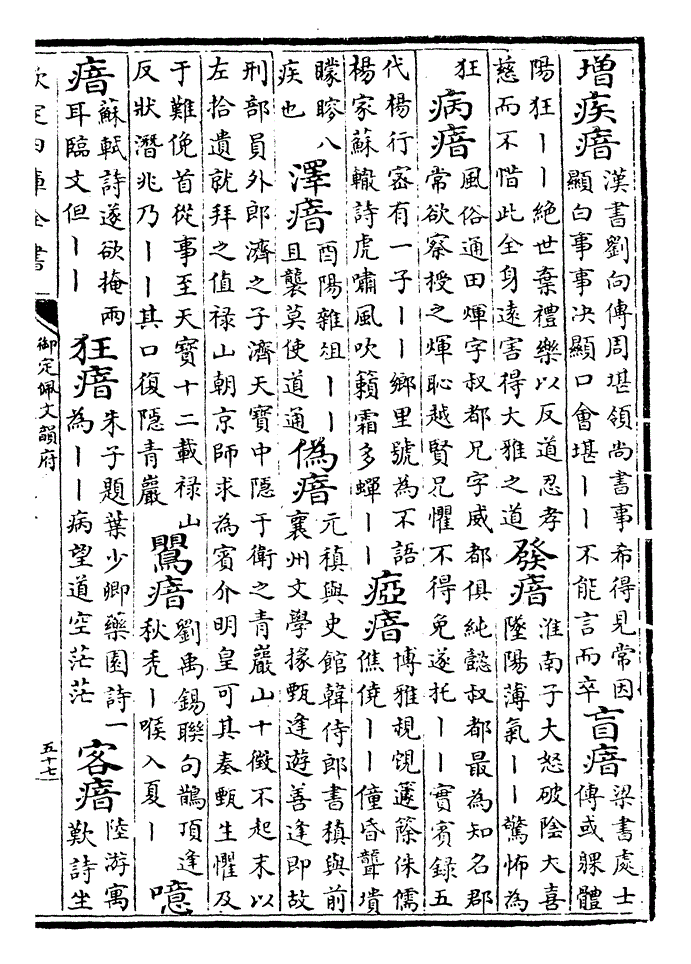 增疾瘖
漢書劉向傳周堪領尚書事希得見常因
顯白事事决顯口會堪丨丨不能言而卒
盲瘖
梁書處士
傳或躶體
陽狂丨丨絶世棄禮樂以反道忍孝
慈而不惜此全身逺害得大雅之道
發瘖
淮南子大怒破陰大喜
墜陽薄氣丨丨驚怖為
狂
病瘖
風俗通田煇字叔都兄字威都俱純懿叔都最為知名郡
常欲察授之煇恥越賢兄懼不得免遂托丨丨實賓録五
代楊行宻有一子丨丨鄉里號為不語
楊家蘇轍詩虎嘯風吹籟霜多蟬丨丨
瘂瘖
博雅籧篨侏儒
僬僥丨丨僮昏聾聵
矇瞍八
疾也
澤瘖
酉陽雜俎丨丨
且襲莫使道通
僞瘖
元稹與史館韓侍郎書稹與前
襄州文學掾甄逢遊善逢即故
刑部員外郎濟之子濟天寶中隠于衛之青巖山十徵不起末以
左拾遺就拜之值禄山朝京師求為賓介明皇可其奏甄生懼及
于難俛首從事至天寶十二載禄山
反狀潛兆乃丨丨其口復隠青巖
鸎瘖
劉禹錫聯句鵲頂逢
秋秃丨喉入夏丨
噫
瘖
蘇軾詩遂欲掩兩
耳臨文但丨丨
狂瘖
朱子題葉少卿藥園詩一
為丨丨病望道空茫茫
客瘖
陸游寓
歎詩坐
欽定四庫全書
御定佩文韻府
五十七